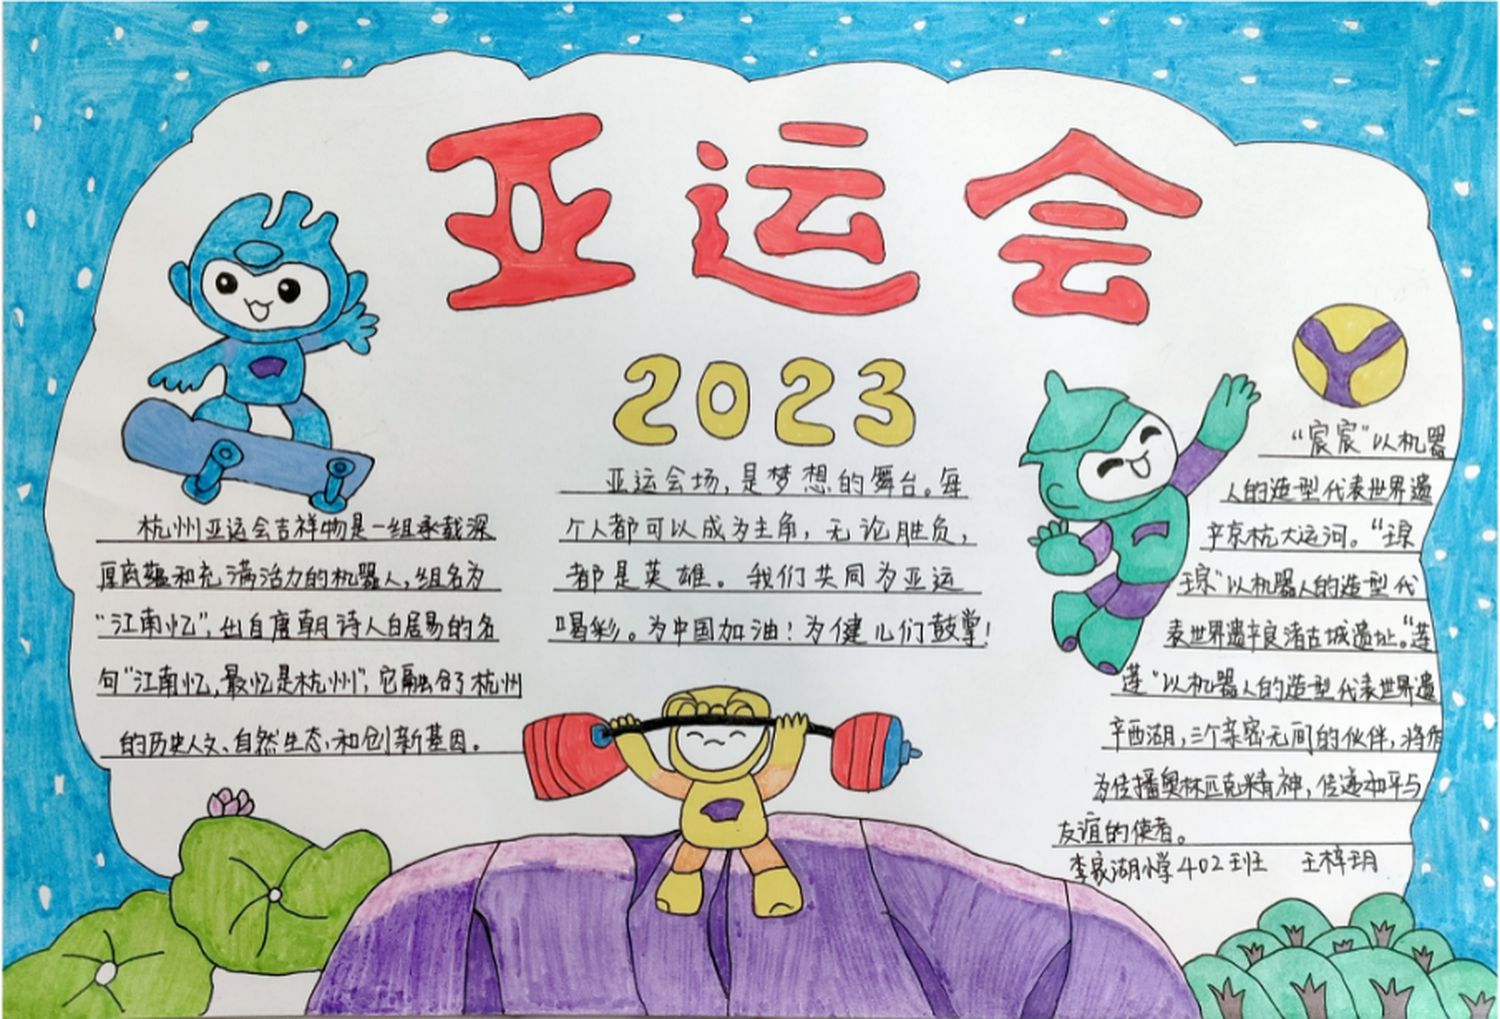 亚运会
2023
杭州亚运会吉祥物是一组承载深
厚底蕴和充满活力的机器人,组名为
“江南忆”,出自唐朝诗人白居易的名
句“江南忆,最忆是杭州”,它融合了杭州
的历史人文、自然生态、和创新基因。
亚运会场,是梦想的舞台。每
个人都可以成为主角,无论胜负,
都是英雄。我们共同为亚运
喝彩。为中国加油!为健儿们鼓掌!
“宸宸”以机器
人的造型代表世界遗
产京杭大运河。“琮
琮”以机器人的造型代
表世界遗产良渚古城遗址。“莲
莲”以机器人的造型代表世界遗
产西湖,三个亲密无间的伙伴,将作
为传播奥林匹克精神,传递和平与
友谊的使者。
李家湖小学402班 王梓玥